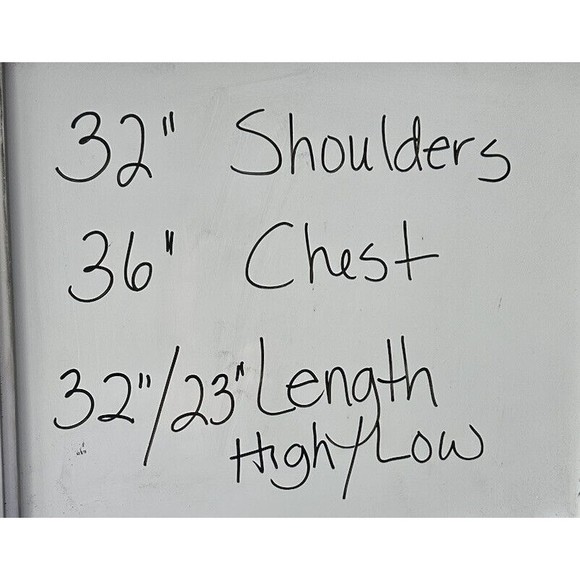 32" Shoulders
36" Chest
32"/23" Length
High/Low